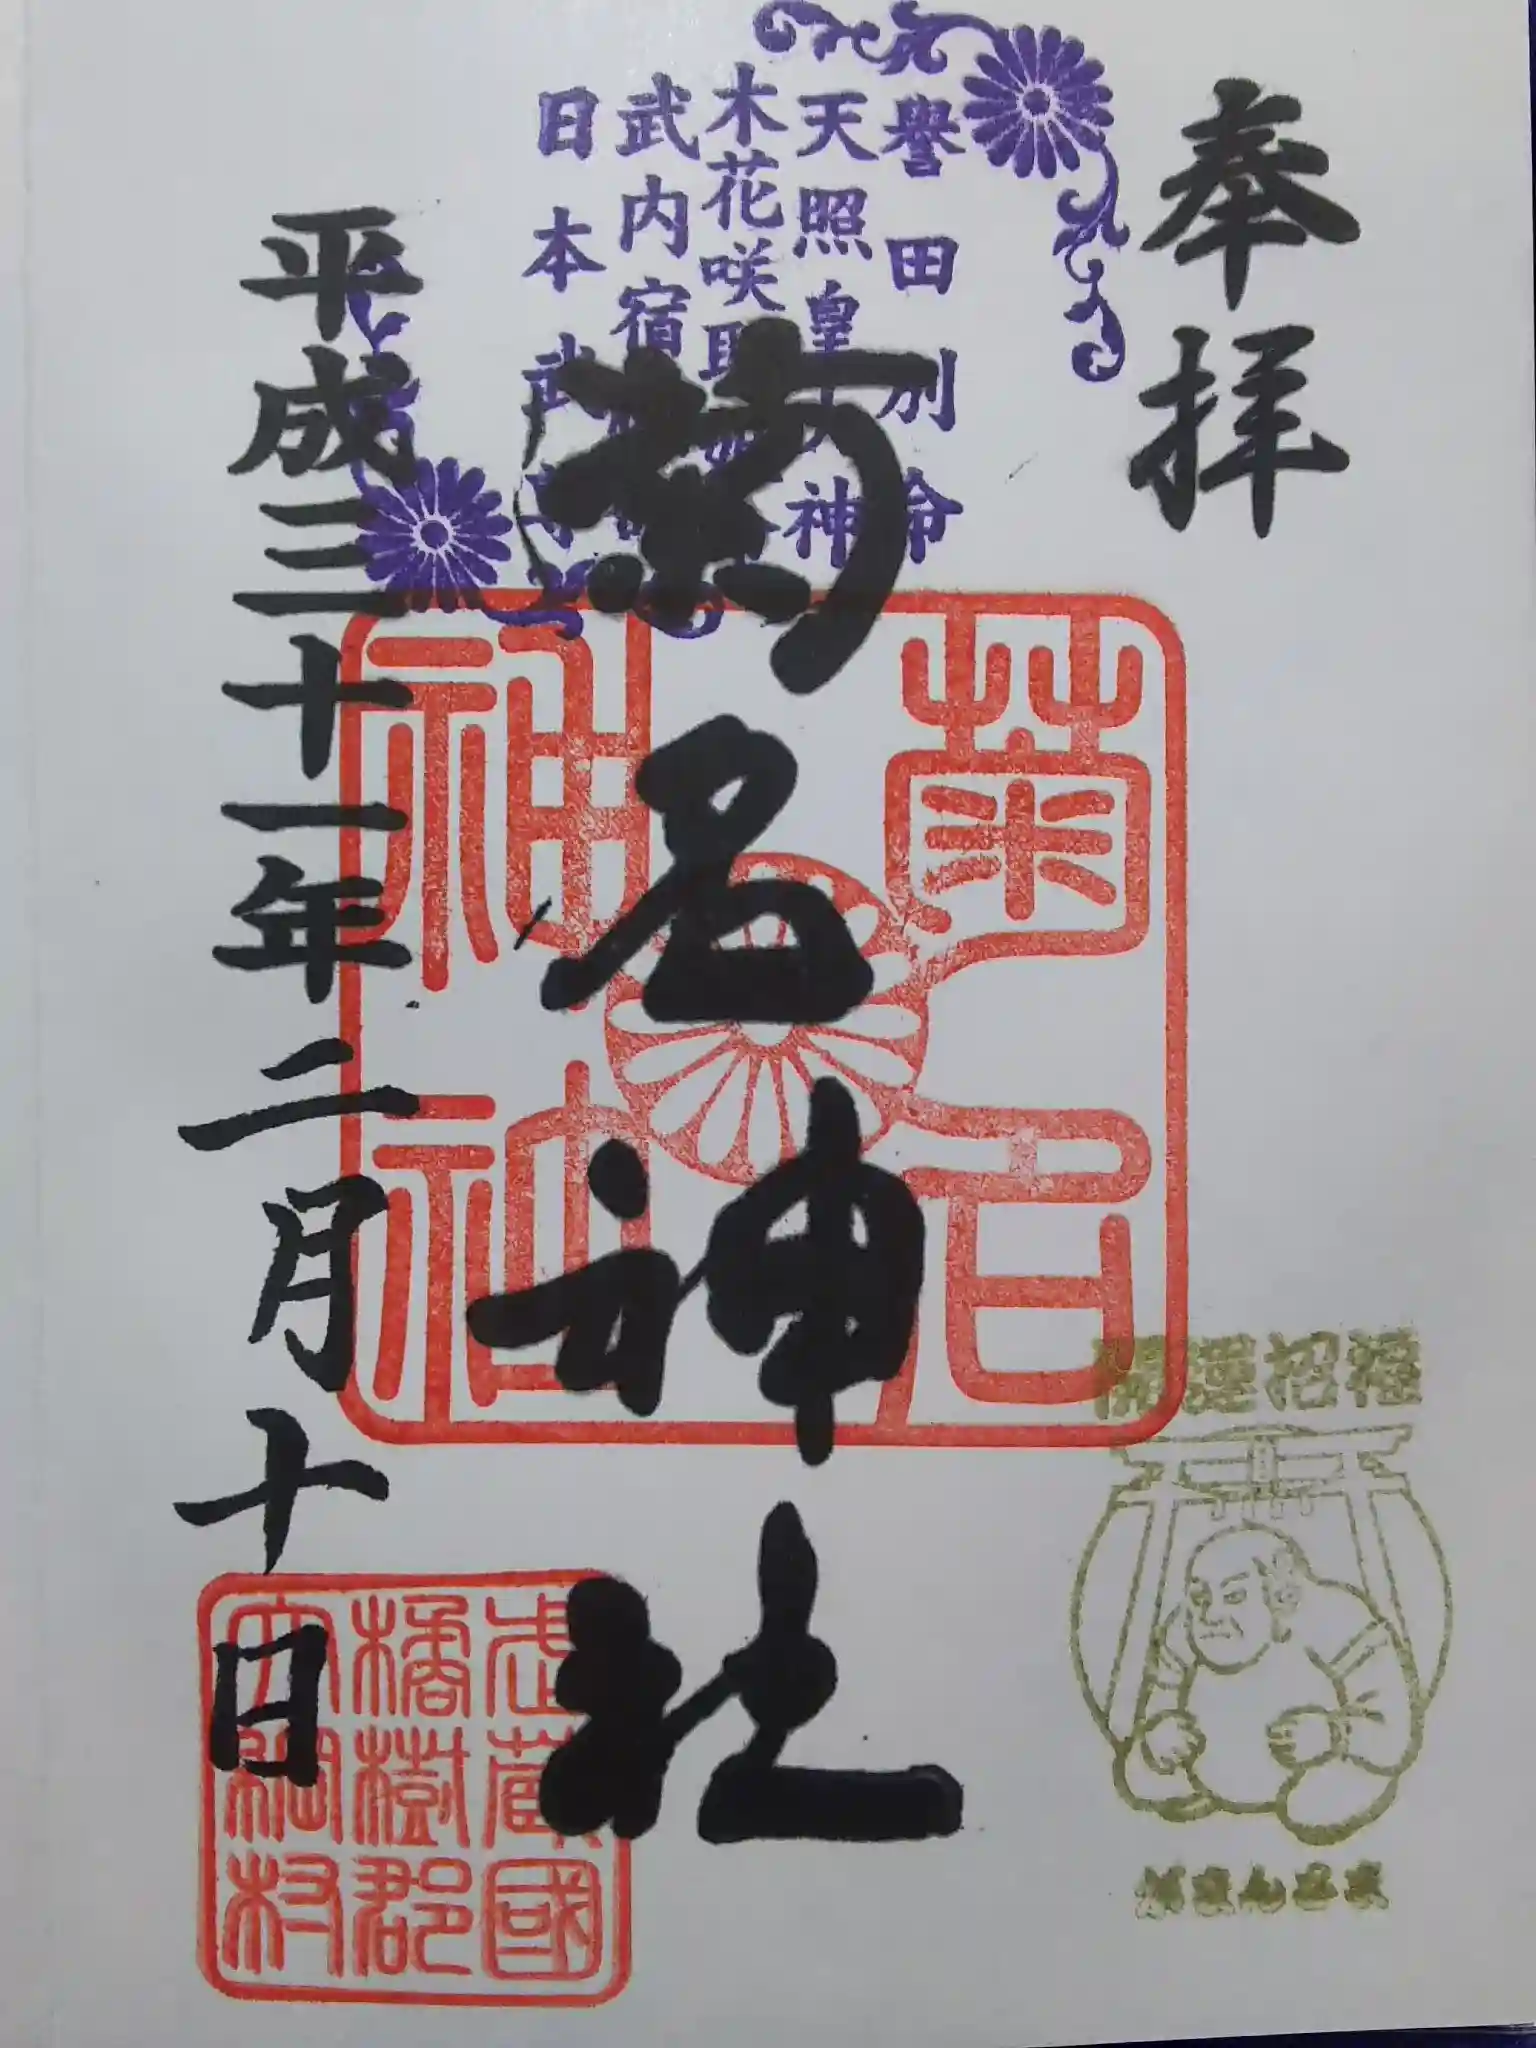 奉拝
譽田別命
天照皇大神
木花咲耶姫命
武内宿禰命
日本武尊
菊名神社
平成三十一年二月十日
菊名
神社
開運招福
がまんさま
武蔵國
橘樹郡
大綱村